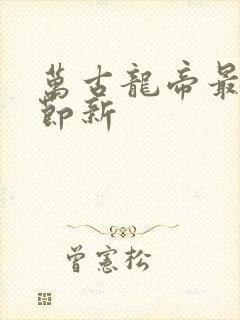 萬古龍帝最
節新
曾憲松